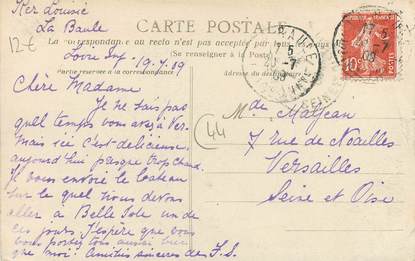 Ker Louisic
La Baule
Loire Inf. 19.7.09
12€
CARTE POSTALE
La correspondance au recto n'est pas acceptée par tous
(Se renseigner à la Poste)
Partie réservée à la correspondance
Adresse du destinataire
Chère Madame
Je ne sais pas
quel temps vous avez à Ver.
Mais ici c'est délicieux
aujourd'hui presque trop chaud.
Je vous envoie le bateau
sur le quel nous devons
aller à Belle Isle un de
ces jours. J'espère que vous
vous portez tous aussi bien
que moi. Amitiés sincères de F.S.
44
Mde Maljean
7 rue de Noailles
Versailles
Seine et Oise
10